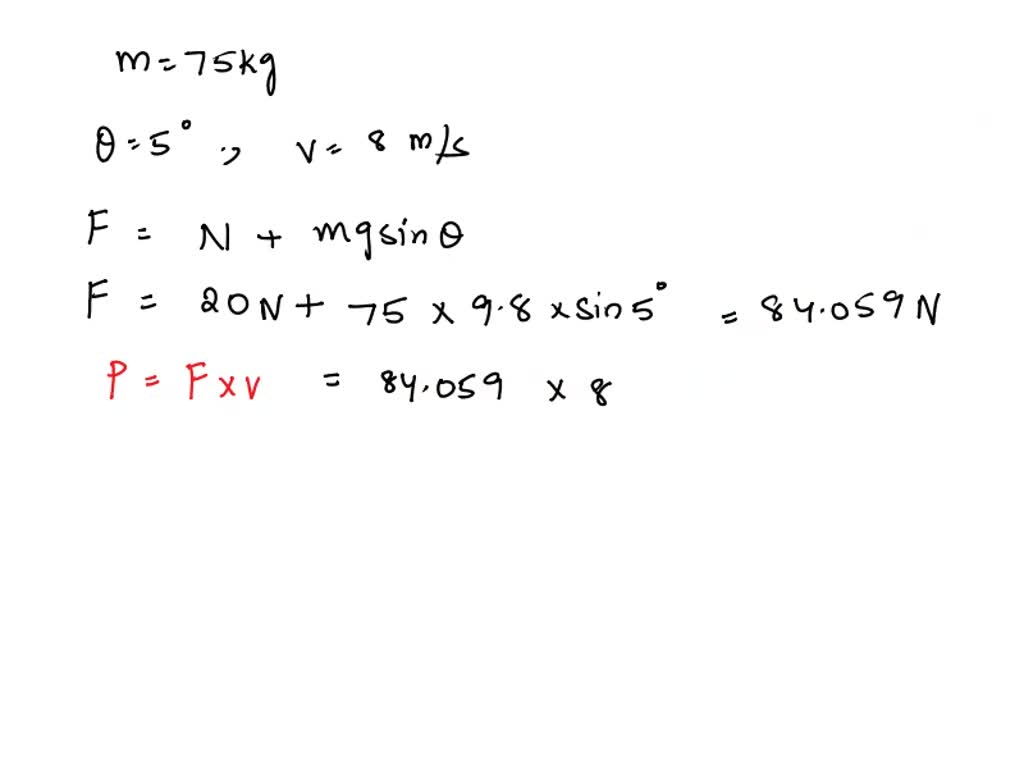 m = 75kg
θ = 5° , v = 8 m/s
F = N + mg sin θ
F = 20N + 75 × 9.8 × sin 5° = 84.059 N
P = F × v = 84.059 × 8